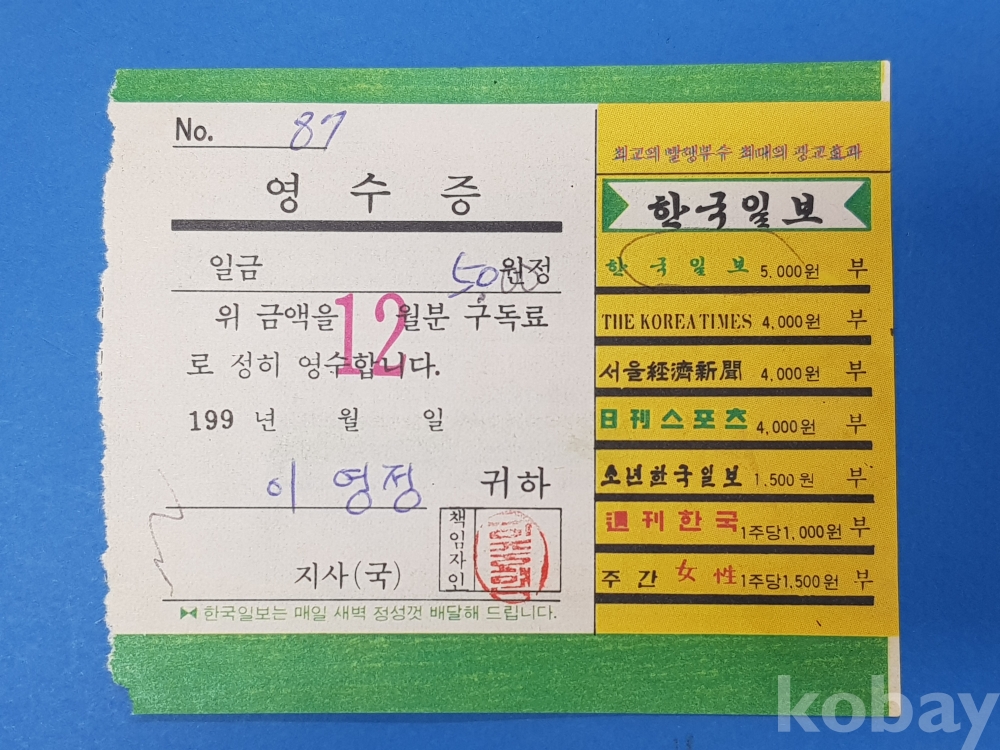 No. 87
영 수 증
일금 5000 원정
위 금액을 12 월분 구독료
로 정히 영수합니다.
199 년 월 일
이 영정 귀하
책임자인
지사(국)
한국일보는 매일 새벽 정성껏 배달해 드립니다.
최고의 발행부수 최대의 광고효과
한국일보
한국일보 5,000원 부
THE KOREA TIMES 4,000원 부
서울經濟新聞 4,000원 부
日刊스포츠 4,000원 부
소년한국일보 1,500원 부
週刊한국 1주당1,000원 부
주간女性 1주당1,500원 부
kobay